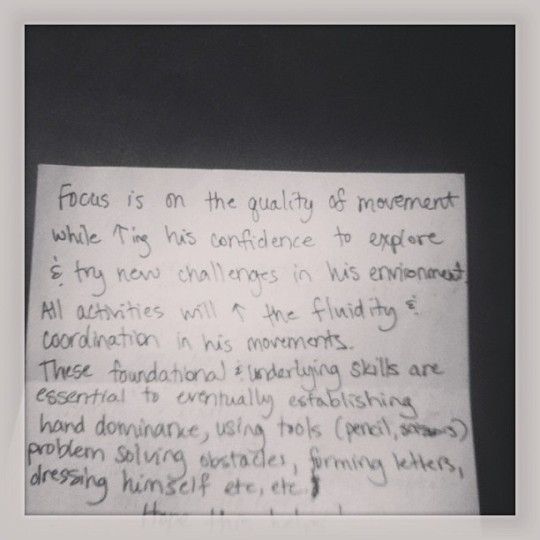 Focus is on the quality of movement
while ↑ing his confidence to explore
& try new challenges in his environment.
All activities will ↑ the fluidity &
coordination in his movements.
These foundational & underlying skills are
essential to eventually establishing
hand dominance, using tools (pencil, scissors)
problem solving obstacles, forming letters,
dressing himself etc, etc.!
Hope this helps!